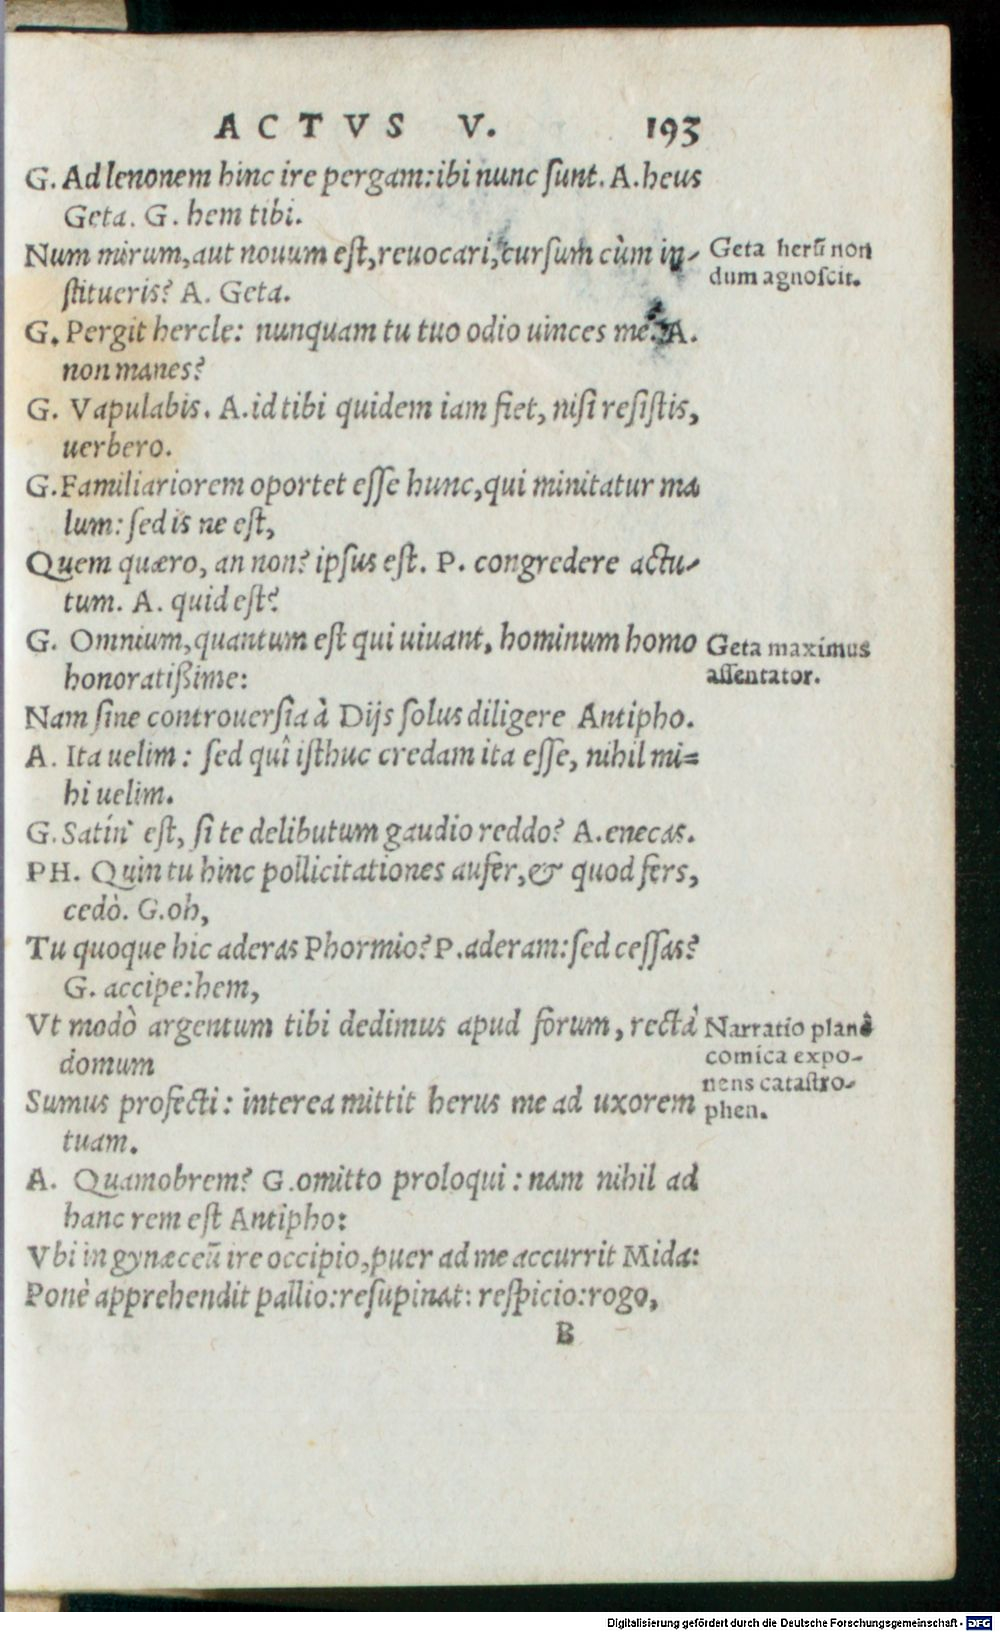 ACTVS V. 193
G. Ad lenonem hinc ire pergam: ibi nunc ſunt. A. heus
Geta. G. hem tibi.
Num mirum, aut nouum eſt, reuocari, curſum cùm in-
ſtitueris? A. Geta.
Geta herū non
dum agnoſcit.
G. Pergit hercle: nunquam tu tuo odio uinces me. A.
non manes?
G. Vapulabis. A. id tibi quidem iam fiet, niſi reſiſtis,
uerbero.
G. Familiariorem oportet eſſe hunc, qui minitatur ma
lum: ſed is ne eſt,
Quem quæro, an non? ipſus eſt. P. congredere actu-
tum. A. quid eſt?
G. Omnium, quantum eſt qui uiuant, hominum homo
honoratißime:
Geta maximus
aſſentator.
Nam ſine controuerſia à Dijs ſolus diligere Antipho.
A. Ita uelim: ſed quî iſthuc credam ita eſſe, nihil mi=
hi uelim.
G. Satín' eſt, ſi te delibutum gaudio reddo? A. enecas.
PH. Quin tu hinc pollicitationes aufer, & quod fers,
cedò. G. oh,
Tu quoque hic aderas Phormio? P. aderam: ſed ceſſas?
G. accipe: hem,
Vt modò argentum tibi dedimus apud forum, rectà
domum
Sumus profecti: interea mittit herus me ad uxorem
tuam.
Narratio planè
comica expo-
nens cataſtro-
phen.
A. Quamobrem? G. omitto proloqui: nam nihil ad
hanc rem eſt Antipho:
Vbi in gynæceū ire occipio, puer ad me accurrit Mida:
Ponè apprehendit pallio: reſupinat: reſpicio: rogo,
B
Digitalisierung gefördert durch die Deutsche Forschungsgemeinschaft - DFG